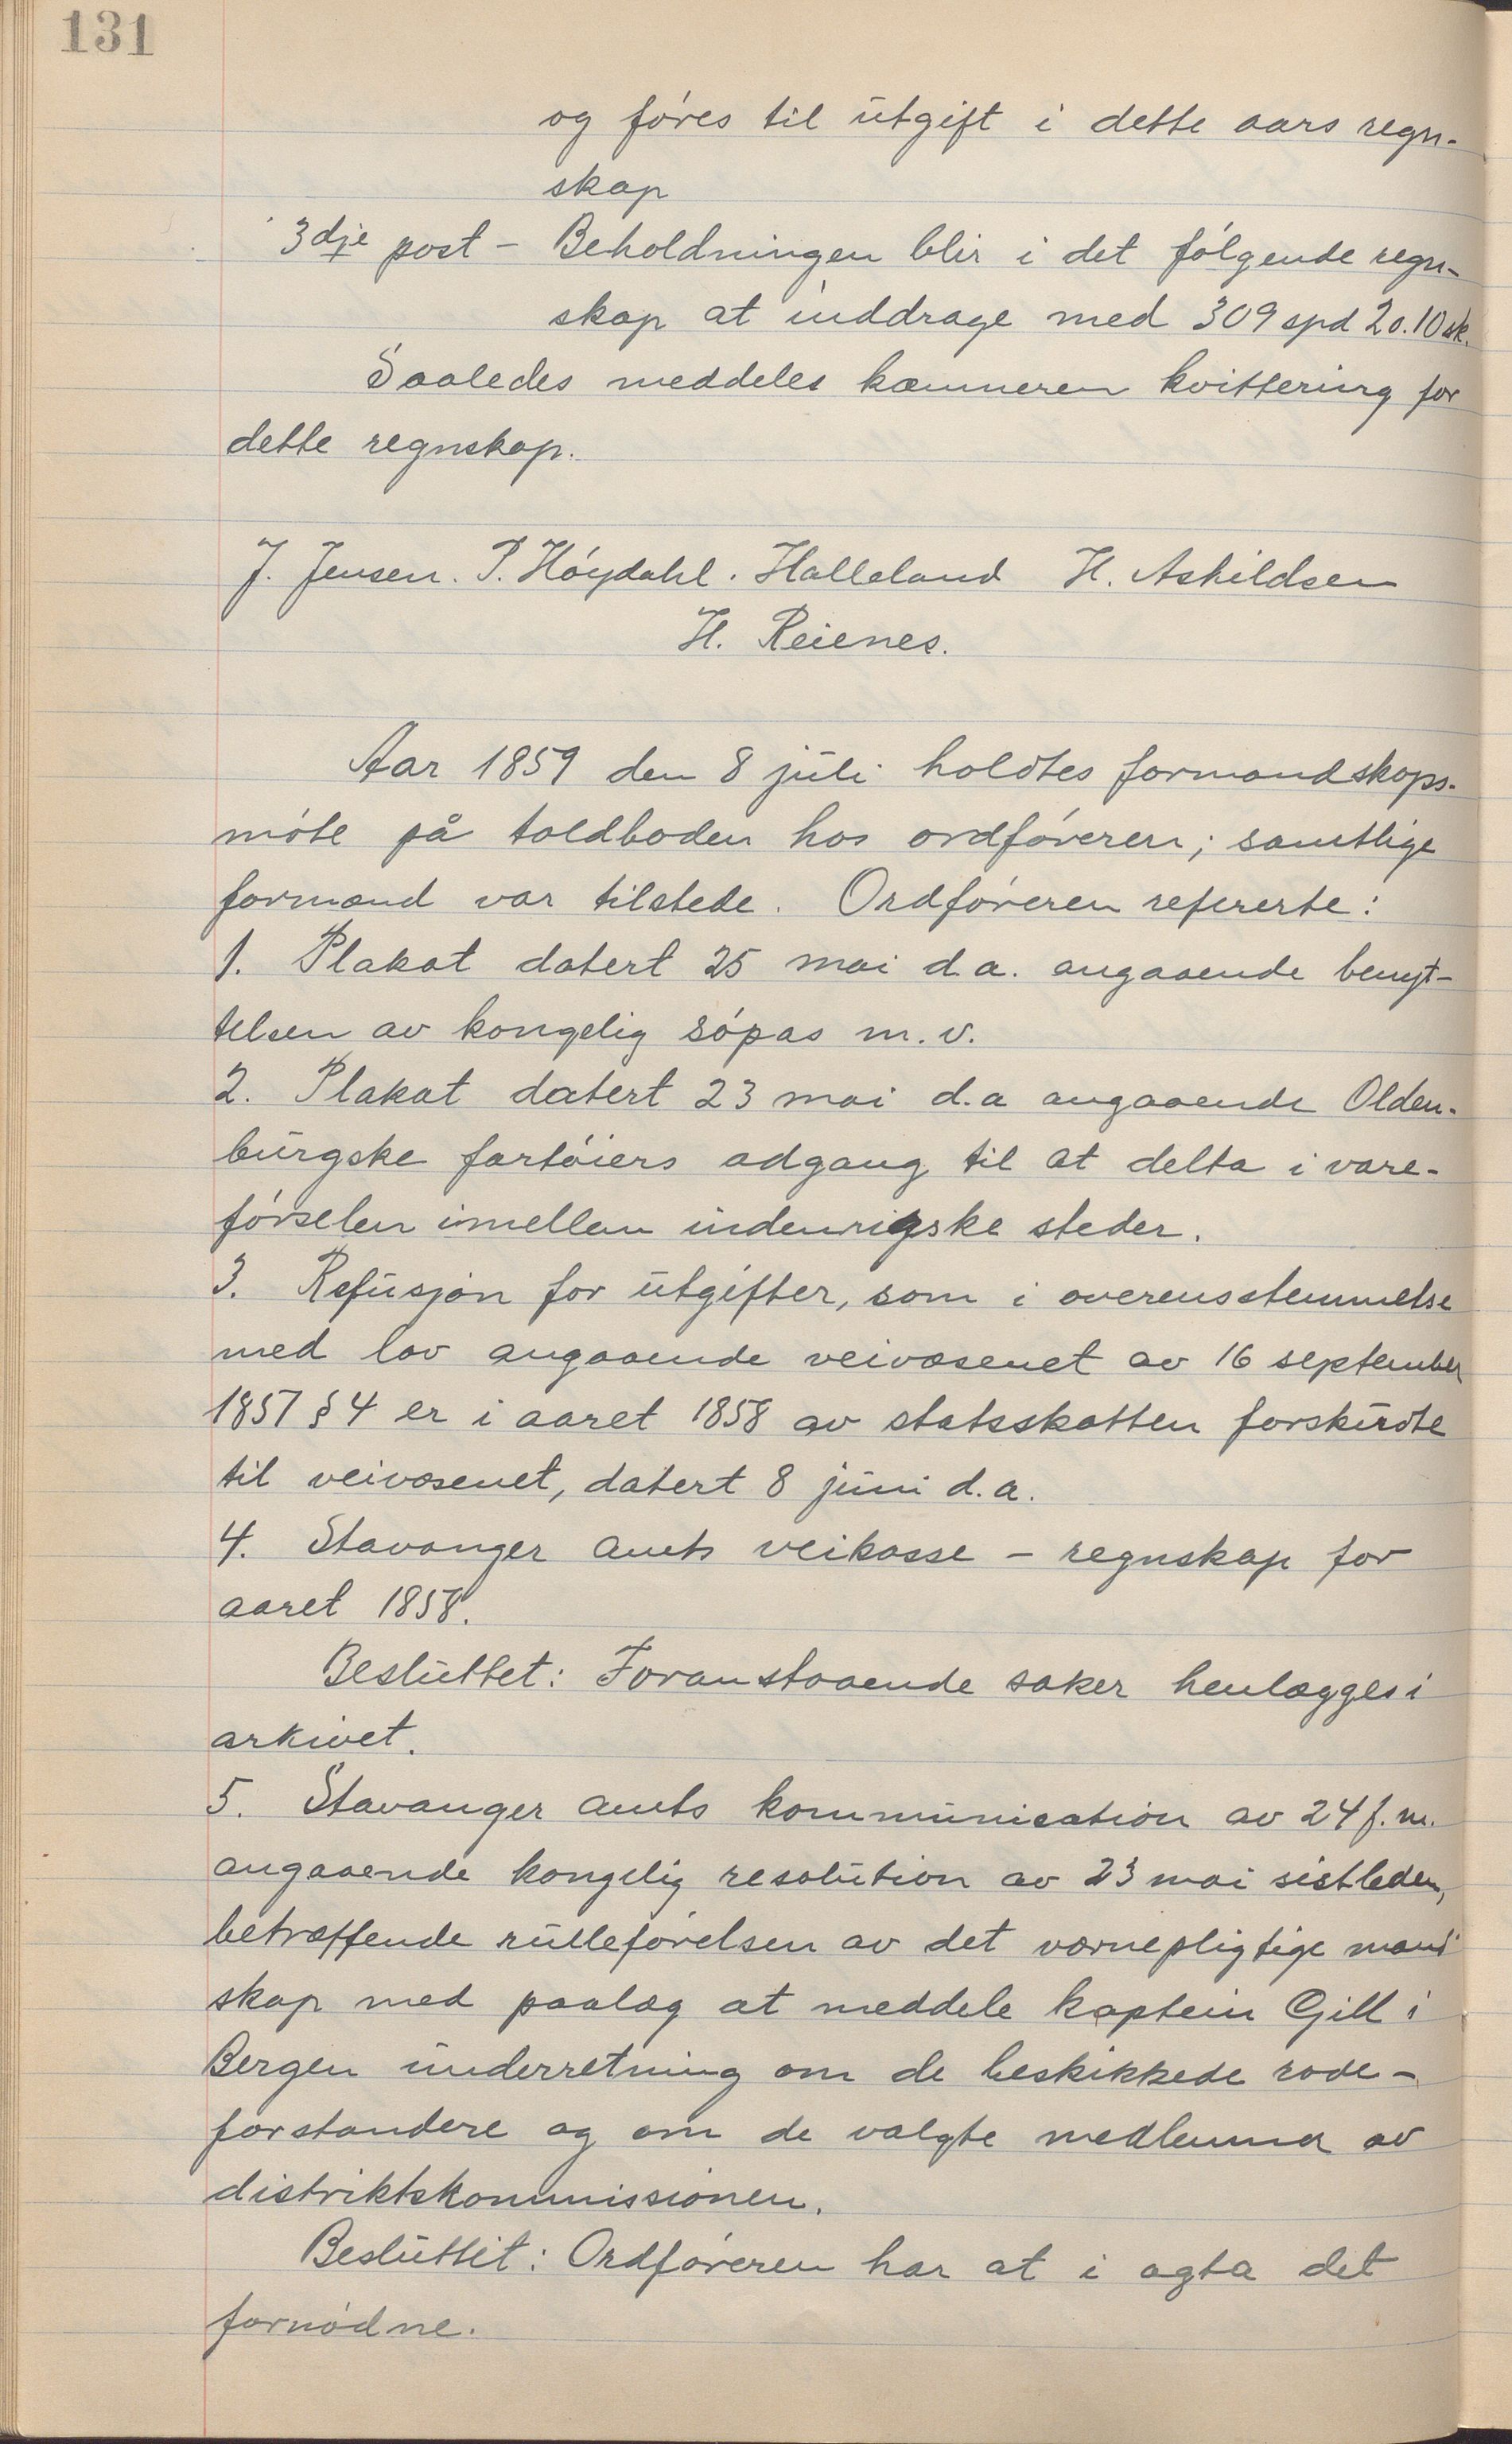 131
og föres til utgift i dette aars regn-
skap
3dje post - Beholdningen blir i det følgende regn-
skap at inddrage med 309 spd 2 o. 10 sk.
Saaledes meddeles kæmneren kvittering for
dette regnskap.
J. Jensen. P. Höydahl. Halleland H. Askildsen
H. Reienes.
Aar 1859 den 8 juli holdtes formandskaps-
möte på toldboden hos ordföreren; samtlige
formænd var tilstede. Ordföreren refererte:
1. Plakat datert 25 mai d.a. angaaende benyt-
telsen av kongelig söpas m.v.
2. Plakat datert 23 mai d.a angaaende Olden-
burgske fartöiers adgang til at delta i vare-
förselen imellem indenrigske steder.
3. Refusjon for utgifter, som i overensstemmelse
med lov angaaende veivæsenet av 16 september
1857 § 4 er i aaret 1858 av statsskatten forskudte
til veivæsenet, datert 8 juni d.a.
4. Stavanger amts veikasse - regnskap for
aaret 1858.
Besluttet: Foranstaaende saker henlægges i
arkivet.
5. Stavanger amts kommunication av 24 f.m.
angaaende kongelig resolution av 23 mai sistleden,
betræffende rulleförelsen av det værnepligtige mand
skap med paalæg at meddele kaptein Gill i
Bergen underretning om de beskikkede rode-
forstandere og om de valgte medlemmer av
distriktskommissionen.
Besluttet: Ordföreren har at i agta det
fornödne.